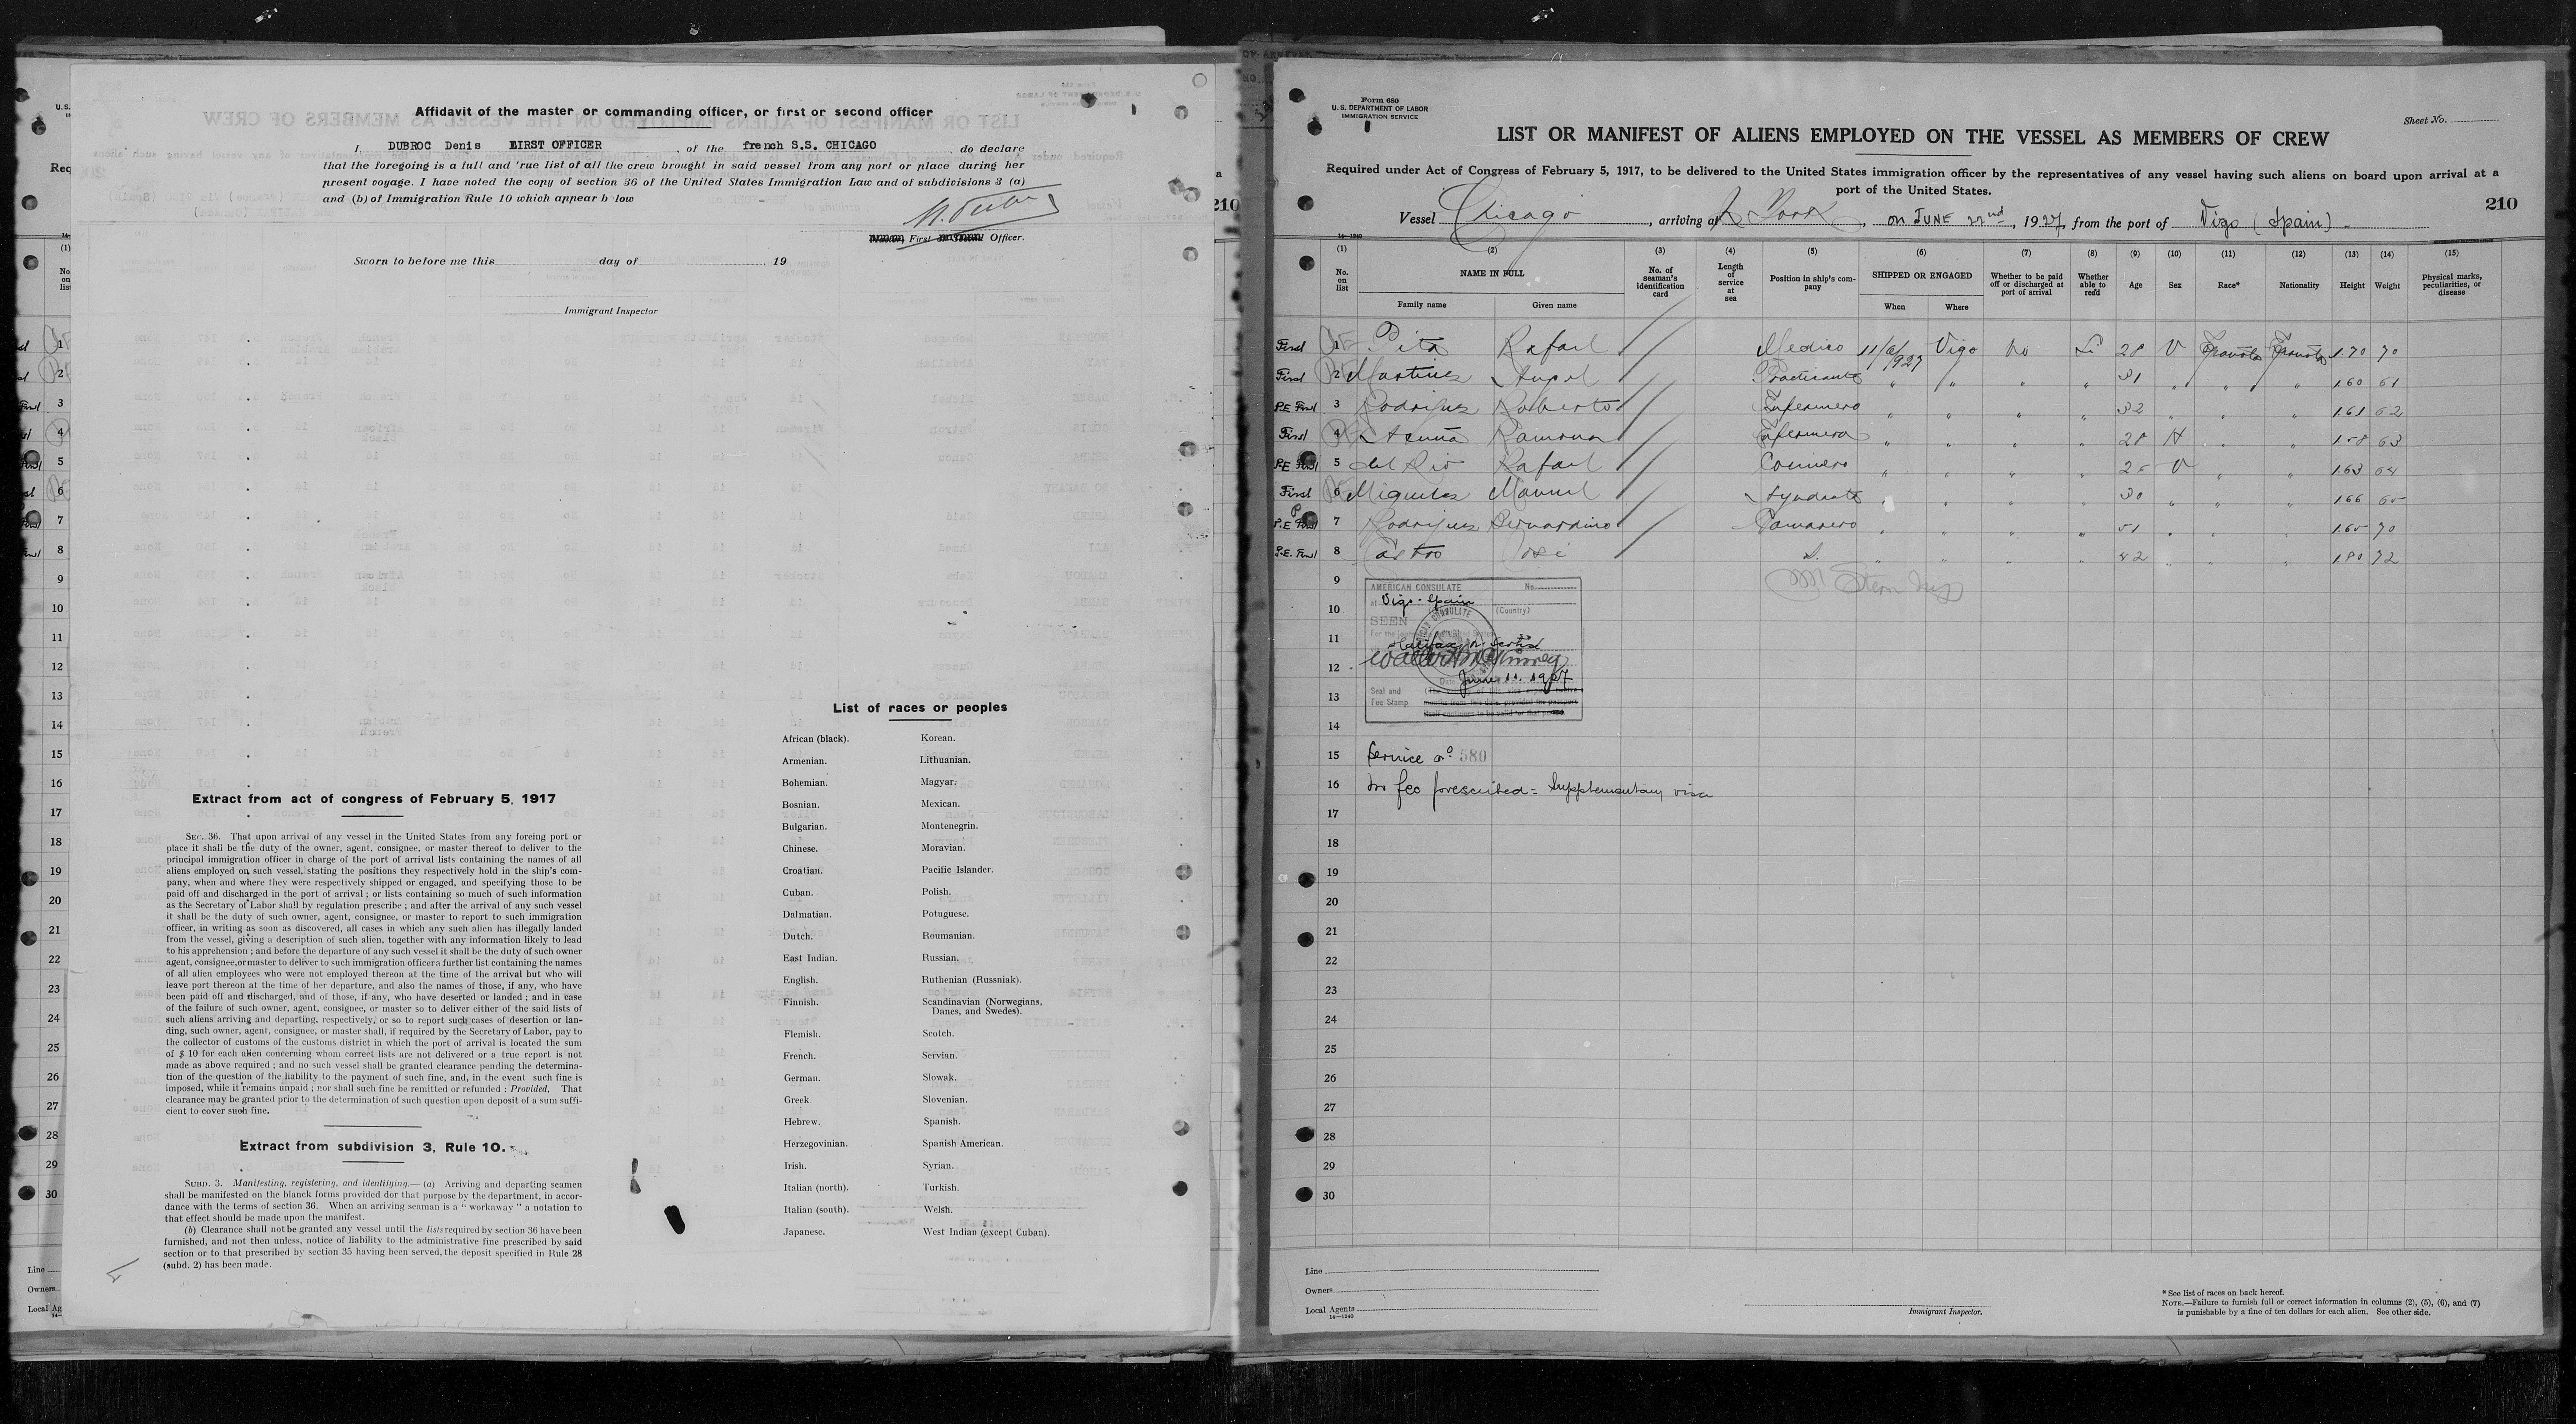 Affidavit of the master or commanding officer, or first or second officer
I, DUBROC Denis FIRST OFFICER, of the french S.S. CHICAGO, do declare
that the foregoing is a full and 'rue list of all the crew brought in said vessel from any port or place during her
present voyage. I have noted the copy of section 36 of the United States Immigration Law and of subdivisions 3 (a)
and (b) of Immigration Rule 10 which appear b low
First Officer.
Sworn to before me this day of 19
Immigrant Inspector
List of races or peoples
African (black). Korean.
Armenian. Lithuanian.
Bohemian. Magyar.
Bosnian. Mexican.
Bulgarian. Montenegrin.
Chinese. Moravian.
Croatian. Pacific Islander.
Cuban. Polish.
Dalmatian. Potuguese.
Dutch. Roumanian.
East Indian. Russian.
English. Ruthenian (Russniak).
Finnish. Scandinavian (Norwegians,
Danes, and Swedes).
Flemish. Scotch.
French. Servian.
German. Slowak.
Greek Slovenian.
Hebrew. Spanish.
Herzegovinian. Spanish American.
Irish. Syrian.
Italian (north). Turkish.
Italian (south). Welsh.
Japanese. West Indian (except Cuban).
Extract from act of congress of February 5, 1917
SEC. 36. That upon arrival of any vessel in the United States from any foreing port or
place it shall be the duty of the owner, agent, consignee, or master thereof to deliver to the
principal immigration officer in charge of the port of arrival lists containing the names of all
aliens employed on such vessel, stating the positions they respectively hold in the ship's com-
pany, when and where they were respectively shipped or engaged, and specifying those to be
paid off and discharged in the port of arrival ; or lists containing so much of such information
as the Secretary of Labor shall by regulation prescribe ; and after the arrival of any such vessel
it shall be the duty of such owner, agent, consignee, or master to report to such immigration
officer, in writing as soon as discovered, all cases in which any such alien has illegally landed
from the vessel, giving a description of such alien, together with any information likely to lead
to his apprehension ; and before the departure of any such vessel it shall be the duty of such owner
agent, consignee, or master to deliver to such immigration officer a further list containing the names
of all alien employees who were not employed thereon at the time of the arrival but who will
leave port thereon at the time of her departure, and also the names of those, if any, who have
been paid off and discharged, and of those, if any, who have deserted or landed ; and in case
of the failure of such owner, agent, consignee, or master so to deliver either of the said lists of
such aliens arriving and departing, respectively, or so to report such cases of desertion or lan-
ding, such owner, agent, consignee, or master shall, if required by the Secretary of Labor, pay to
the collector of customs of the customs district in which the port of arrival is located the sum
of $ 10 for each alien concerning whom correct lists are not delivered or a true report is not
made as above required ; and no such vessel shall be granted clearance pending the determina-
tion of the question of the liability to the payment of such fine, and, in the event such fine is
imposed, while it remains unpaid ; nor shall such fine be remitted or refunded : Provided, That
clearance may be granted prior to the determination of such question upon deposit of a sum suffi-
cient to cover such fine.
Extract from subdivision 3, Rule 10.
SUBD. 3. Manifesting, registering, and identifying.— (a) Arriving and departing seamen
shall be manifested on the blanck forms provided dor that purpose by the department, in accor-
dance with the terms of section 36. When an arriving seaman is a " workaway " a notation to
that effect should be made upon the manifest.
(b) Clearance shall not be granted any vessel until the lists required by section 36 have been
furnished, and not then unless, notice of liability to the administrative fine prescribed by said
section or to that prescribed by section 35 having been served, the deposit specified in Rule 28
(subd. 2) has been made.
Form 680
U. S. DEPARTMENT OF LABOR
IMMIGRATION SERVICE
Sheet No.
LIST OR MANIFEST OF ALIENS EMPLOYED ON THE VESSEL AS MEMBERS OF CREW
Required under Act of Congress of February 5, 1917, to be delivered to the United States immigration officer by the representatives of any vessel having such aliens on board upon arrival at a
port of the United States.
210
Vessel Chicago, arriving at N York, on JUNE 22nd, 1927, from the port of Vigo (Spain)
14-1240
(1) (2) (3) (4) (5) (6) (7) (8) (9) (10) (11) (12) (13) (14) (15)
No. on list NAME IN FULL Family name Given name No. of seaman's identification card Length of service at sea Position in ship's company SHIPPED OR ENGAGED When Where Whether to be paid off or discharged at port of arrival Whether able to read Age Sex Race* Nationality Height Weight Physical marks, peculiarities, or disease
First 1 Pita Rafael Medico 11/6/927 Vigo No Si 28 V Española Española 1.70 70
First 2 Martinez Angel Practicante " " " " 31 " " " 1.60 61
P.E. Final 3 Rodriguez Roberto Enfermero " " " " 32 " " " 1.61 62
First 4 Acuña Ramona Enfermera " " " " 28 H " " 1.58 63
P.E. Final 5 del Rio Rafael Cocinero " " " " 25 V " " 1.63 64
First 6 Miguelez Manuel Ayudante " " " " 30 " " " 1.66 65
P.E. Final 7 Rodriguez Bernardino Camarero " " " " 51 " " " 1.65 70
P.E. Final 8 Castro José d. " " " " 42 " " " 1.80 72
9
AMERICAN CONSULATE No.
10 at Vigo - Spain (Country)
SEEN
11 Halifax N. Scotia
12
Date June 11. 1927
13 Seal and
Fee Stamp
14
15 Service no. 580
16 No fee prescribed = Supplementary visa
17
18
19
20
21
22
23
24
25
26
27
28
29
30
Line
Owners
Local Agents
14—1240
Immigrant Inspector.
* See list of races on back hereof.
NOTE.—Failure to furnish full or correct information in columns (2), (5), (6), and (7)
is punishable by a fine of ten dollars for each alien. See other side.